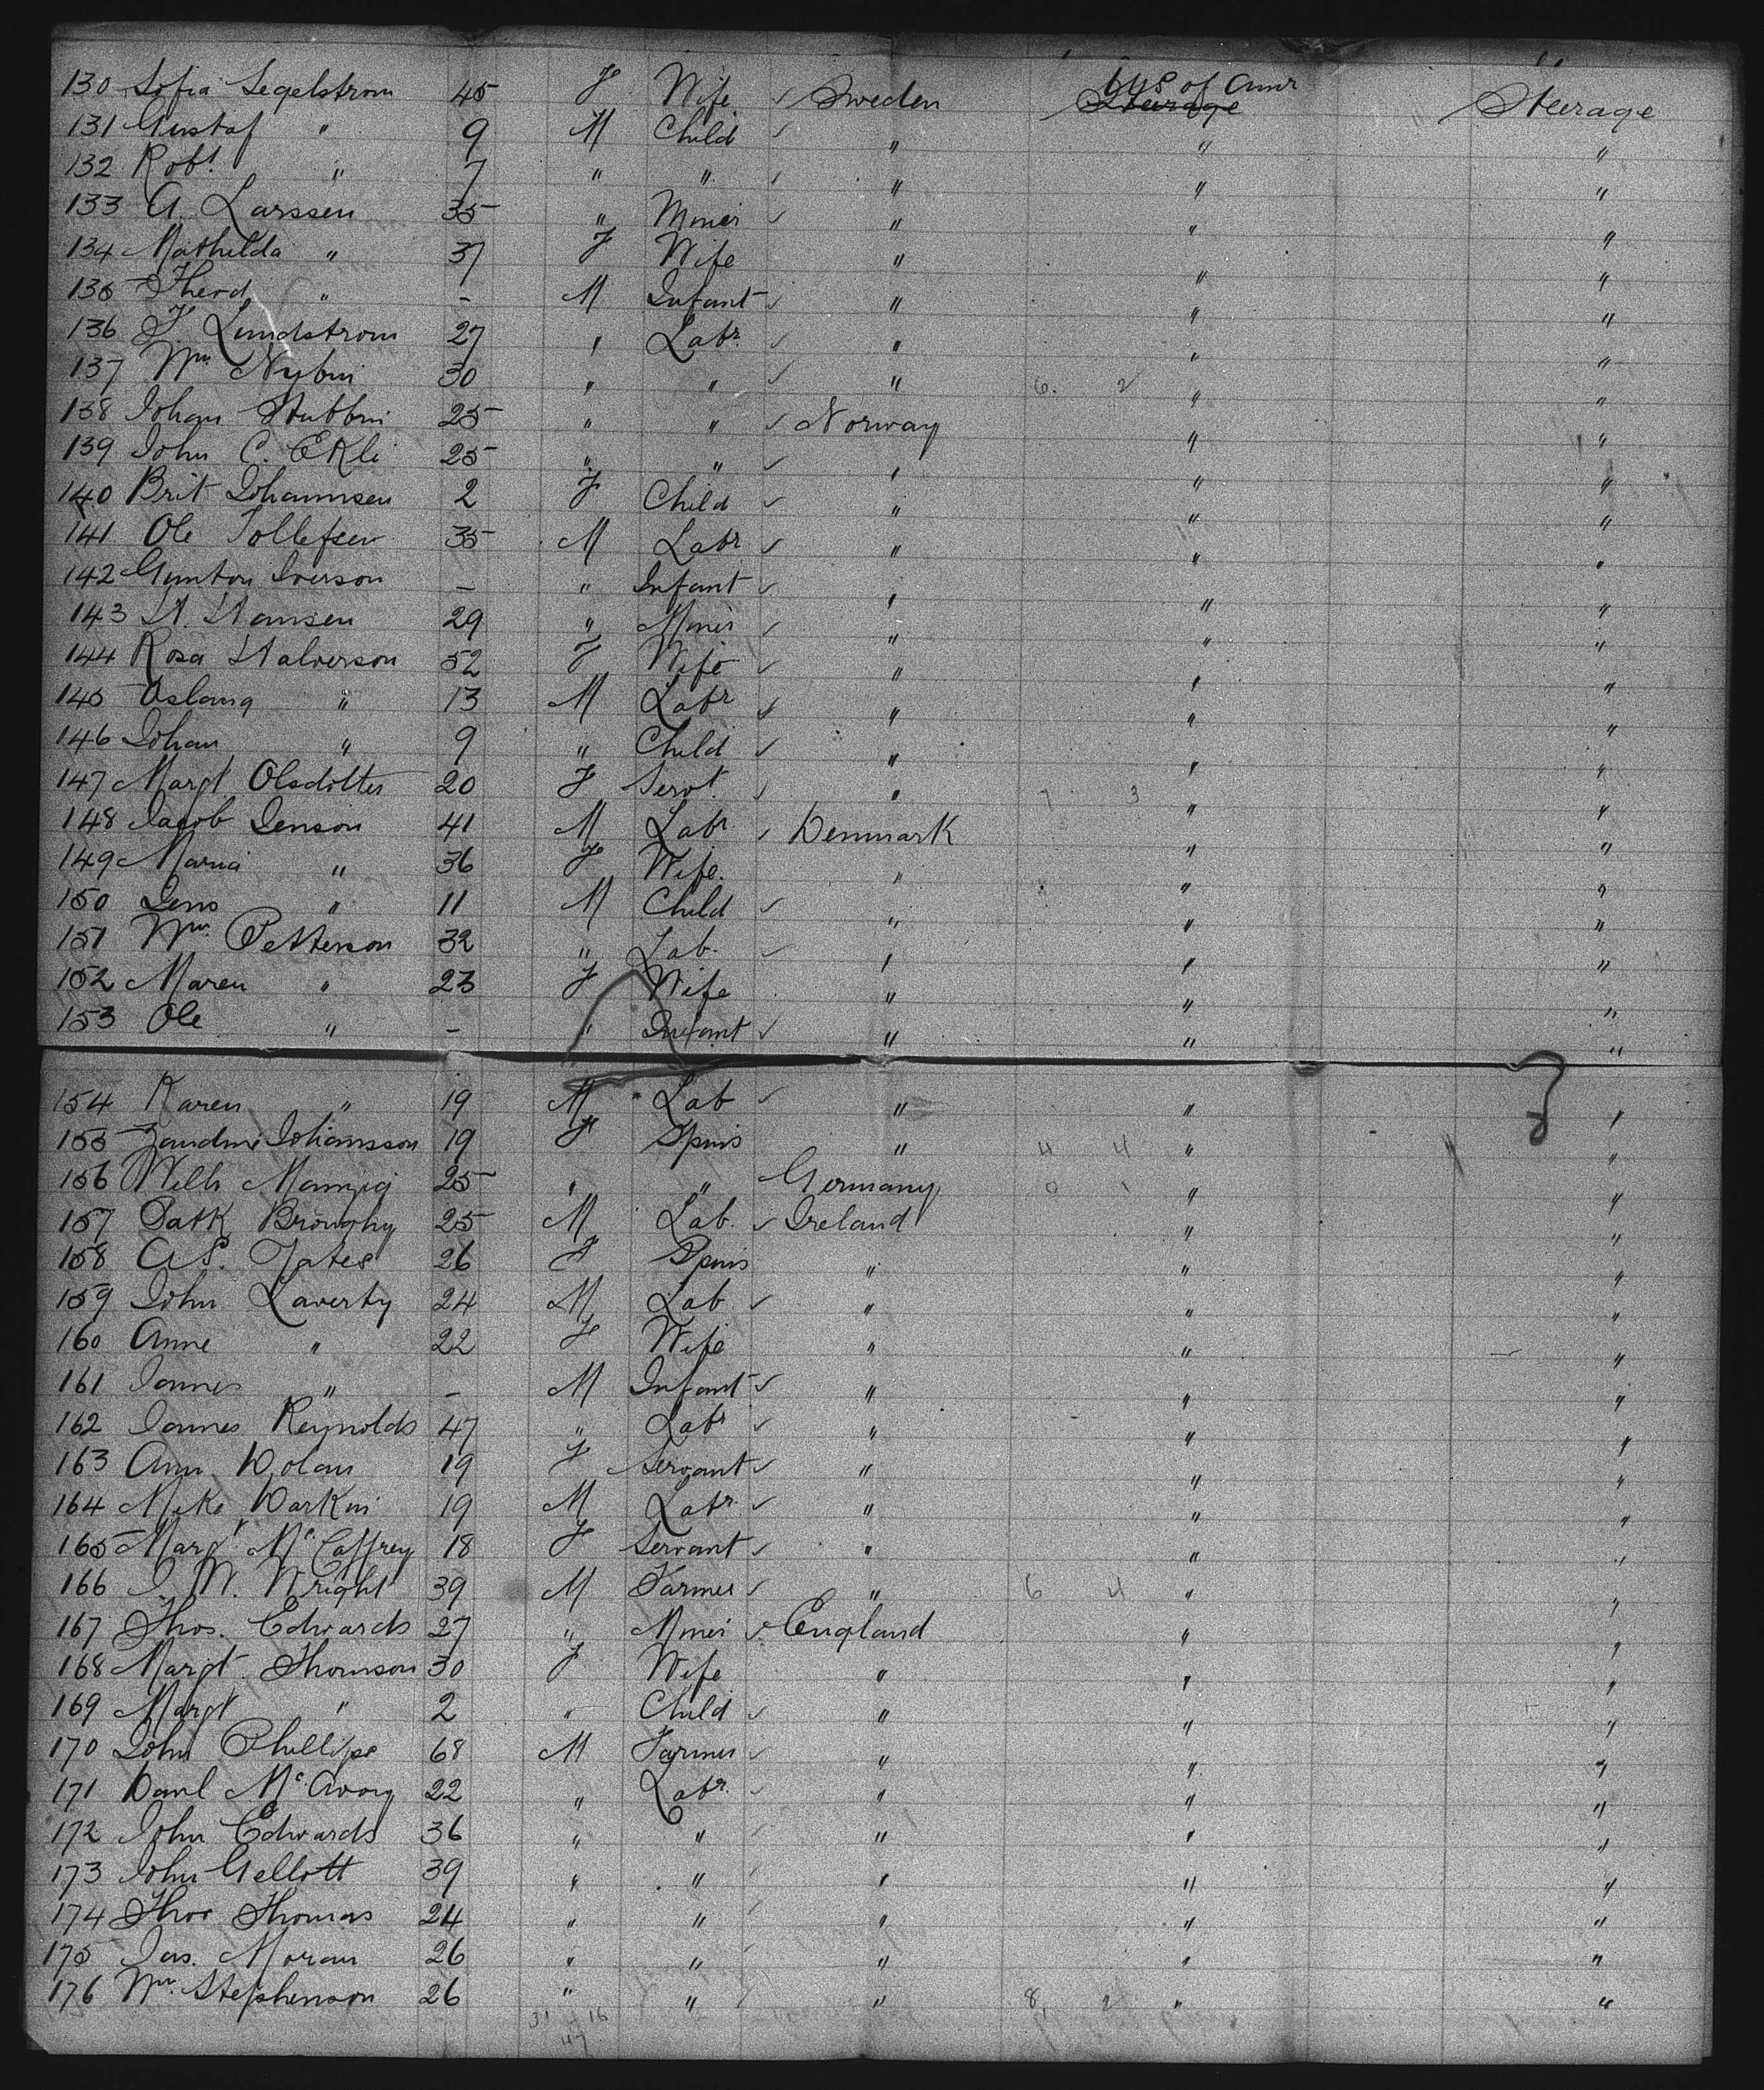 130 Sofia Segelstrom 45 F Wife ✓ Sweden U S of Amr Steerage
131 Gustaf " 9 M Child ✓ " " "
132 Robt. " 7 " " ✓ " " "
133 A. Larssen 35 " Miner ✓ " " "
134 Mathilda " 37 F Wife " " "
135 Theod. " - M Infant ✓ " " "
136 F Lundstrom 27 " Labr. ✓ " " "
137 Wm. Nybin 30 " " ✓ " 6. 2 " "
138 Johan Stubbin 25 " " ✓ Norway " "
139 John C. Ekli 25 " " ✓ " " "
140 Brit Johannsen 2 F Child ✓ " " "
141 Ole Tollefsen 35 M Labr ✓ " " "
142 Gunton Iverson - " Infant ✓ " " "
143 H. Hansen 29 " Miner ✓ " " "
144 Rosa Halverson 52 F Wife ✓ " " "
145 Aslang " 13 M Labr ✓ " " "
146 Johan " 9 " Child ✓ " " "
147 Margt. Olsdotter 20 F Servt. ✓ " 7 3 " "
148 Jacob Jenson 41 M Labr ✓ Denmark " "
149 Maria " 36 F Wife. " " "
150 Jens " 11 M Child ✓ " " "
151 Wm. Petterson 32 " Lab. ✓ " " "
152 Maren " 23 F Wife " " "
153 Ole " - " Infant ✓ " " "
154 Karen " 19 M Lab ✓ " " "
155 Johansson 19 F Spins " 4 4 " "
156 Wilh 25 " " Germany 0 1 " "
157 Patk Broughy 25 M Lab. ✓ Ireland " "
158 A.S. Yates 26 F Spins " " "
159 John Laverty 24 M Lab ✓ " " "
160 Anne " 22 F Wife " " "
161 James " - M Infant ✓ " " "
162 James Reynolds 47 " Labr ✓ " " "
163 Ann Dolan 19 F Servant ✓ " " "
164 Mike Darkin 19 M Labr. ✓ " " "
165 Margt. McCaffrey 18 F Servant ✓ " " "
166 J. W. Wright 39 M Farmer ✓ " 6 4 " "
167 Thos. Edwards 27 " Miner ✓ England " "
168 Margt. Thomson 30 F Wife " " "
169 Margt " 2 " Child ✓ " " "
170 John Phillips 68 M Farmer ✓ " " "
171 Danl McAvoy 22 " Labr. ✓ " " "
172 John Edwards 36 " " ✓ " " "
173 John Gellott 39 " " ✓ " " "
174 Thos Thomas 24 " " ✓ " " "
175 Jas. Moran 26 " " ✓ " " "
176 Wm. Stephenson 26 " " ✓ " 8, 2 " "
31 16
47